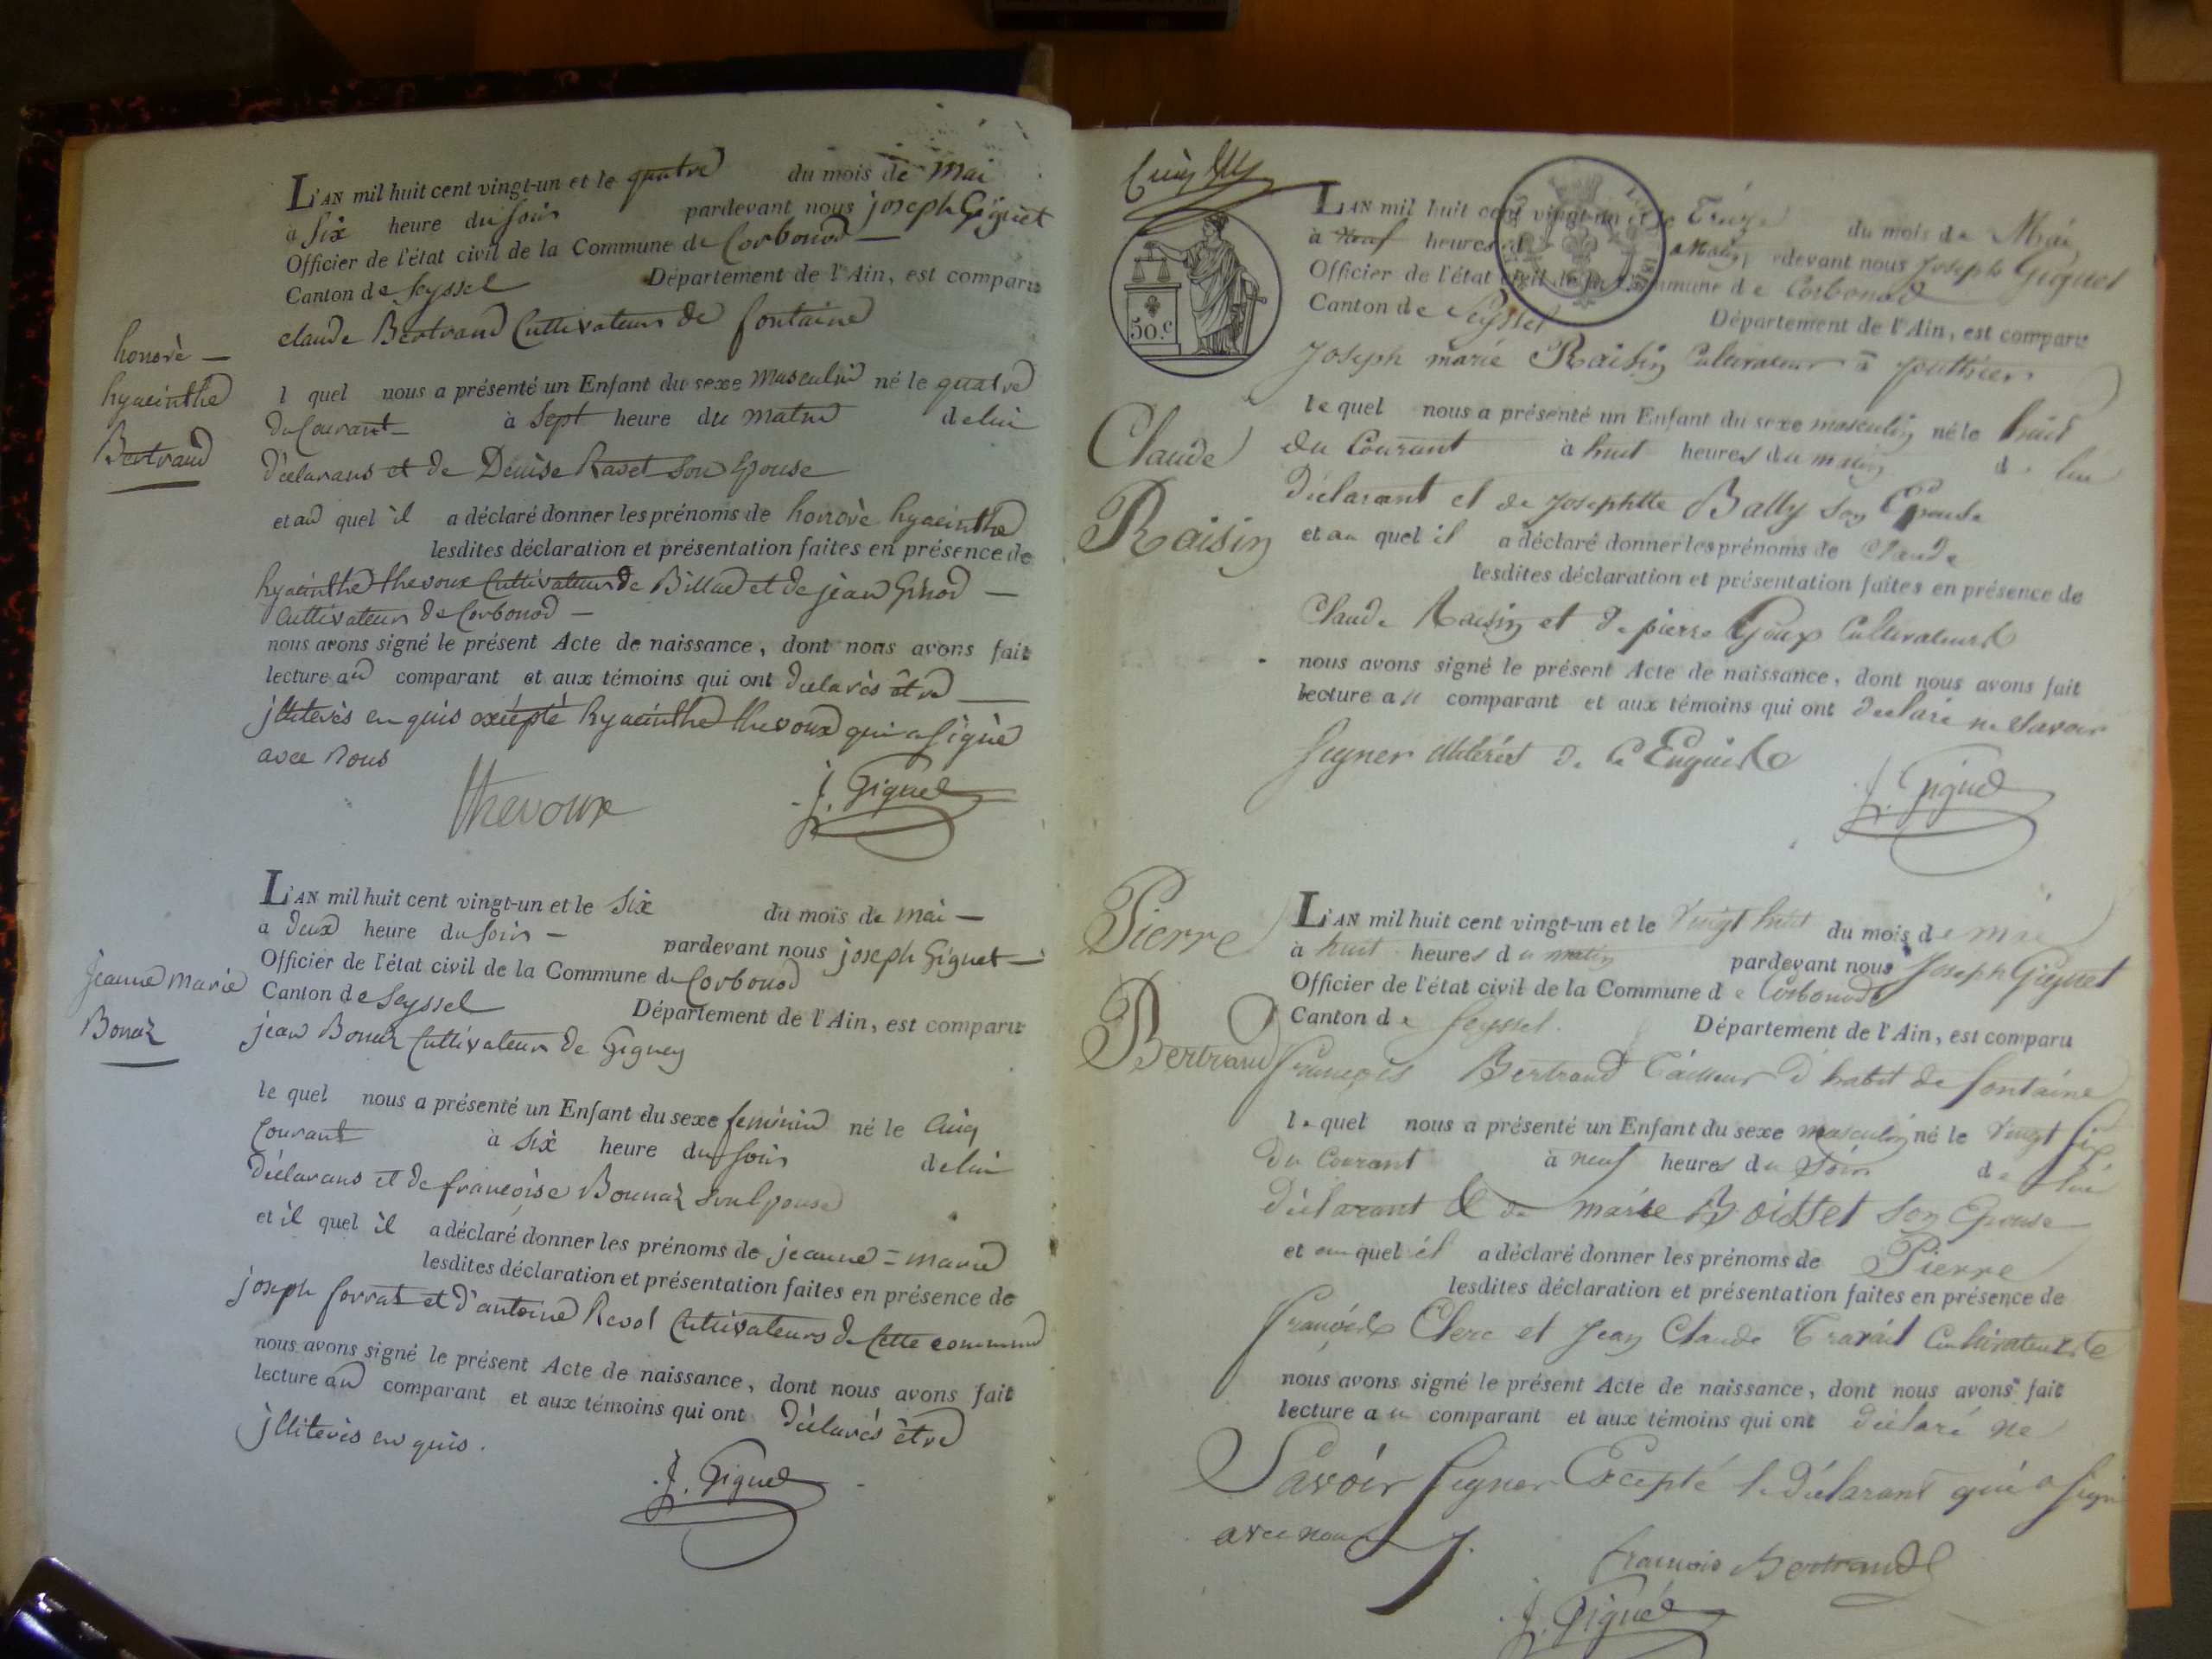 L'AN mil huit cent vingt-un et le quatre du mois de Mai
à Six heure du soir pardevant nous joseph Giguet
Officier de l'état civil de la Commune de Corbonod
Canton de Seyssel Département de l'Ain, est comparu
claude Bertrand Cultivateur de fontaine
honorè
hyacinthe
Bertrand
l quel nous a présenté un Enfant du sexe Masculin né le quatre
du Courant à Sept heure du matin de lui
déclarans et de Denise Ravet son Epouse
et au quel il a déclaré donner les prénoms de honorè hyacinthe
lesdites déclaration et présentation faites en présence de
hyacinthe thevoux Cultivateur de Billac et de jean Ginod
Cultivateur de Corbonod
nous avons signé le présent Acte de naissance, dont nous avons fait
lecture au comparant et aux témoins qui ont déclarés être
jlliterés en quis exiépté hyacinthe thevoux qui a signé
avec Nous
thevoux J. Giguet
L'AN mil huit cent vingt-un et le Six du mois de mai
a deux heure du soir pardevant nous joseph Giguet
Officier de l'état civil de la Commune de Corbonod
Canton de Seyssel Département de l'Ain, est comparu
jean Bonaz Cultivateur de Gigney
Jeanne Marie
Bonaz
le quel nous a présenté un Enfant du sexe feminin né le Cinq
Courant à Six heure du soir de lui
déclarans et de françoise Bonnaz son Epouse
et il quel il a déclaré donner les prénoms de jeanne = marie
lesdites déclaration et présentation faites en présence de
joseph forrat et d'antoine Revol Cultivateurs de Cette commune
nous avons signé le présent Acte de naissance, dont nous avons fait
lecture au comparant et aux témoins qui ont déclarés être
jlliterés en quis.
J. Giguet
50.c
L'AN mil huit cent vingt-un et le Treize du mois de Mai
à Neuf heures du Matin pardevant nous Joseph Giguet
Officier de l'état civil de la Commune de Corbonod
Canton de Seyssel Département de l'Ain, est comparu
Joseph marie Raisin Cultivateur à
Claude
Raisin
le quel nous a présenté un Enfant du sexe masculin né le huit
du Courant à huit heures du matin de lui
Déclarant et de Josephtte Bally son Epouse
et au quel il a déclaré donner les prénoms de Claude
lesdites déclaration et présentation faites en présence de
Claude Raisin et de pierre Goux Cultivateurs
nous avons signé le présent Acte de naissance, dont nous avons fait
lecture au comparant et aux témoins qui ont déclaré ne Savoir
Signer illiterés de ce Enquis
J. Giguet
L'AN mil huit cent vingt-un et le Vingt huit du mois de mai
à huit heures du matin pardevant nous Joseph Giguet
Officier de l'état civil de la Commune de Corbonod
Canton de Seyssel Département de l'Ain, est comparu
françois Bertrand Tailleur d'habit de fontaine
Pierre
Bertrand
le quel nous a présenté un Enfant du sexe masculin né le Vingt Six
Du Courant à neuf heures du Soir de lui
Déclarant & de marie Boisset son Epouse
et au quel il a déclaré donner les prénoms de Pierre
lesdites déclaration et présentation faites en présence de
françois Clerc et Jean Claude Travail Cultivateurs
nous avons signé le présent Acte de naissance, dont nous avons fait
lecture au comparant et aux témoins qui ont déclaré ne
Savoir Signer Excepté le Déclarant qui a signé
avec nous
françois Bertrand
J. Giguet